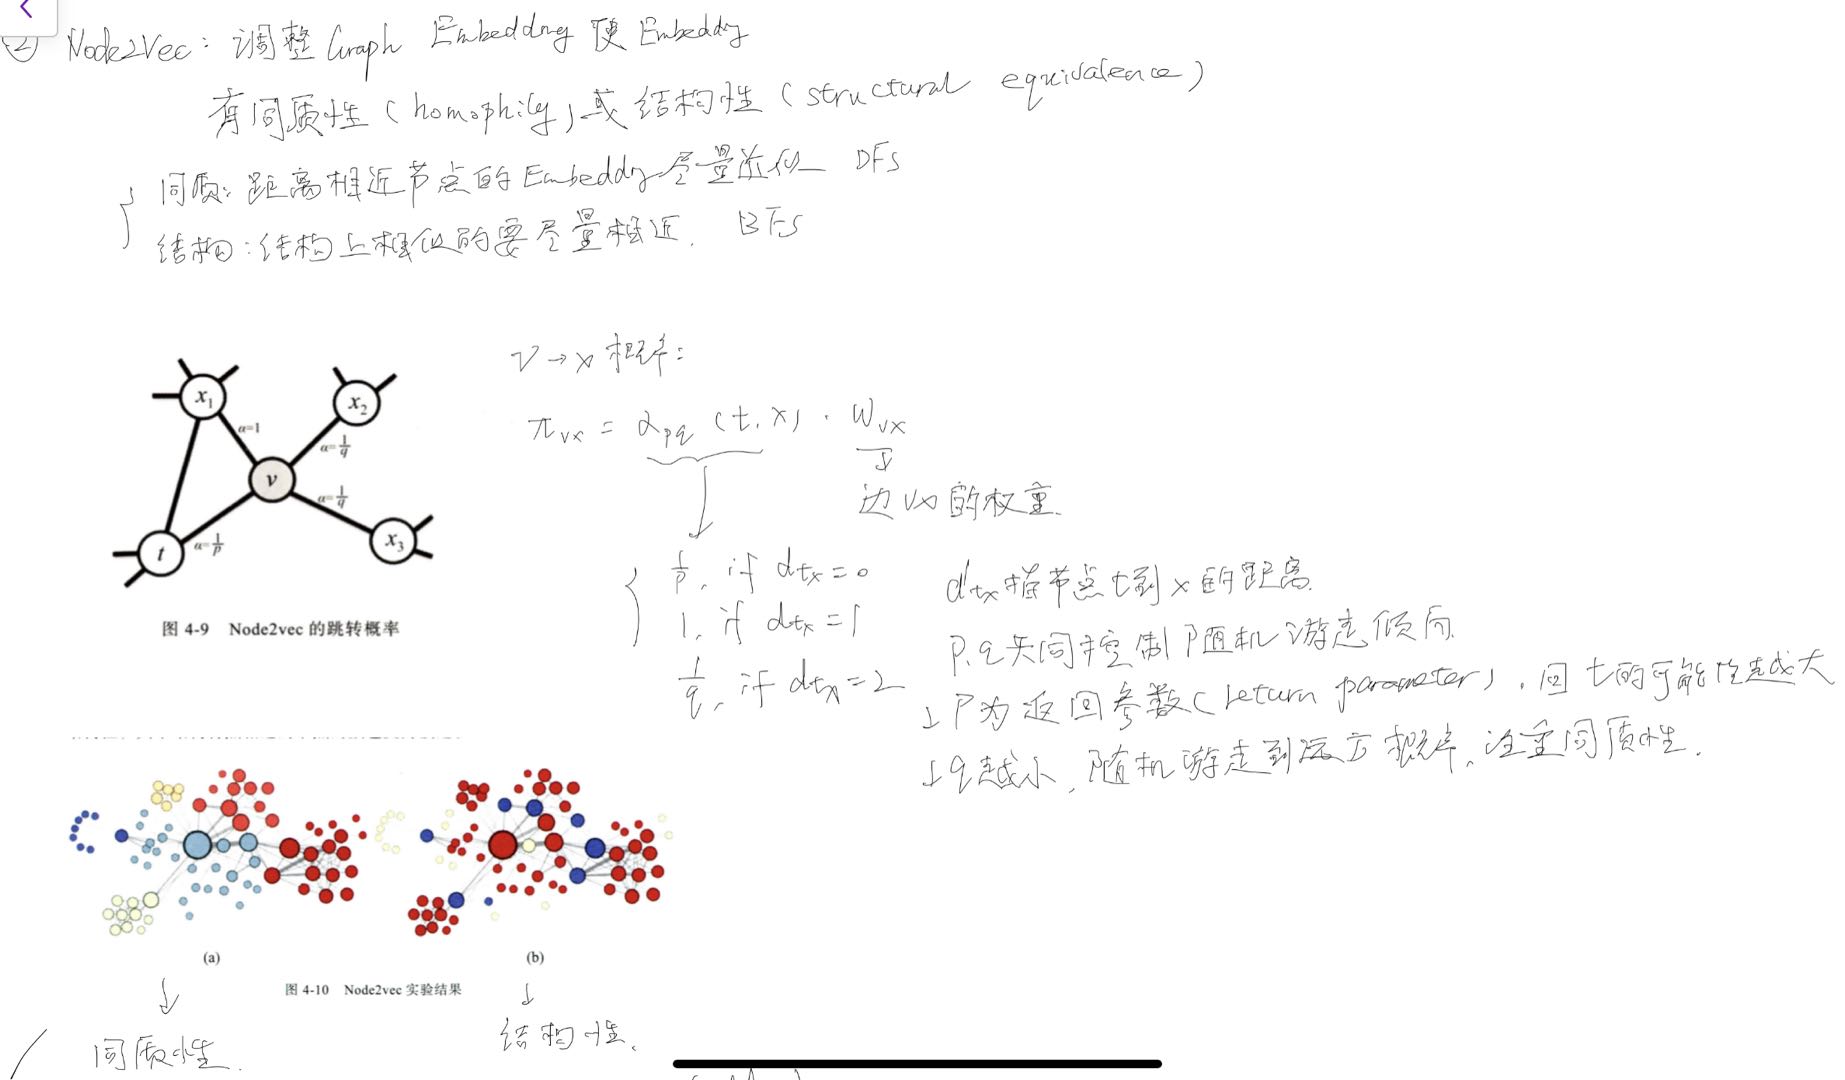 ② Node2Vec：调整 Graph Embedding 使 Embedding
有同质性（homophily）或结构性（structural equivalence）
同质：距离相近节点的Embedding尽量近似 DFS
结构：结构上相似的要尽量相近. BFS
x₁
x₂
α=1
α=1/q
v
α=1/q
t
α=1/p
x₃
图 4-9 Node2vec 的跳转概率
v→x 概率：
π_vx = α_pq (t, x) · W_vx
边 vx 的权重.
1/p, if d_tx=0
1, if d_tx=1
1/q, if d_tx=2
d_tx指节点t到x的距离.
p.q共同控制随机游走倾向.
↓ P为返回参数（return parameter）, 回t的可能性越大
↓ q越小, 随机游走到远方概率, 注重同质性.
(a)
(b)
图 4-10 Node2vec 实验结果
同质性.
结构性.